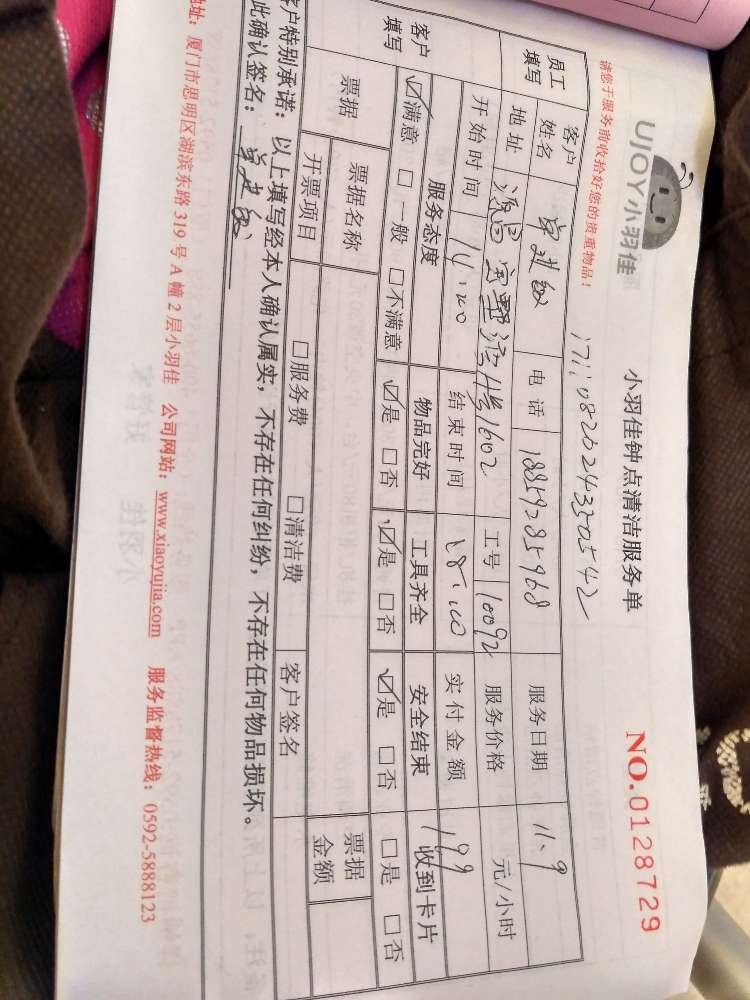 UJOY小羽佳
小羽佳钟点清洁服务单
NO.0128729
请您于服务前收拾好您的贵重物品!
1711082024350542
员工填写 客户姓名 电话 18859285968 服务日期 11.9
地址 1602 工号 10092 服务价格 元/小时
开始时间 14:00 结束时间 18:00 实付金额 199
客户填写 服务态度 物品完好 工具齐全 安全结束 收到卡片
☑满意 □一般 □不满意 ☑是 □否 ☑是 □否 ☑是 □否 □是 □否
票据 票据名称 票据金额
开票项目 □服务费 □清洁费 客户签名
客户特别承诺:以上填写经本人确认属实,不存在任何纠纷,不存在任何物品损坏。
此确认签名:
地址:厦门市思明区湖滨东路319号A幢2层小羽佳 公司网站:www.xiaoyujia.com 服务监督热线:0592-5888123